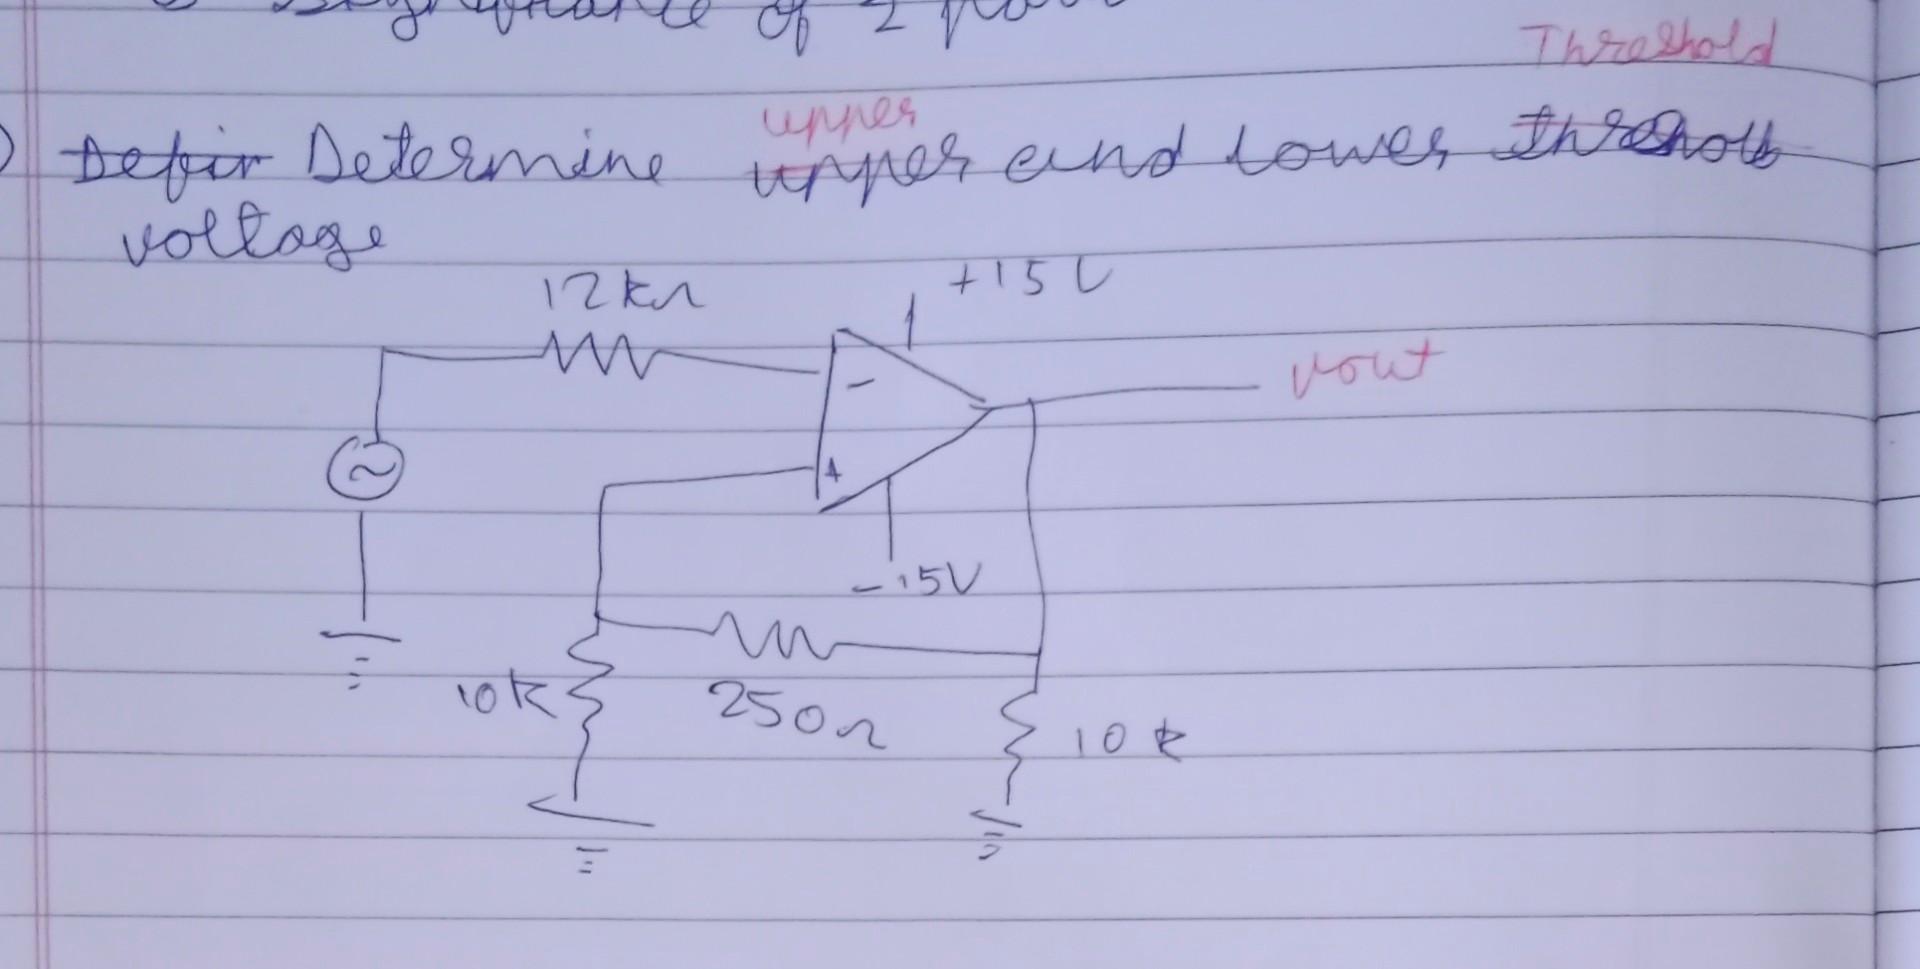 of 2
Threshold
upper
Determine upper and Lower
voltage
12kΩ
+15V
Vout
-
+
-15V
10K
250Ω
10k